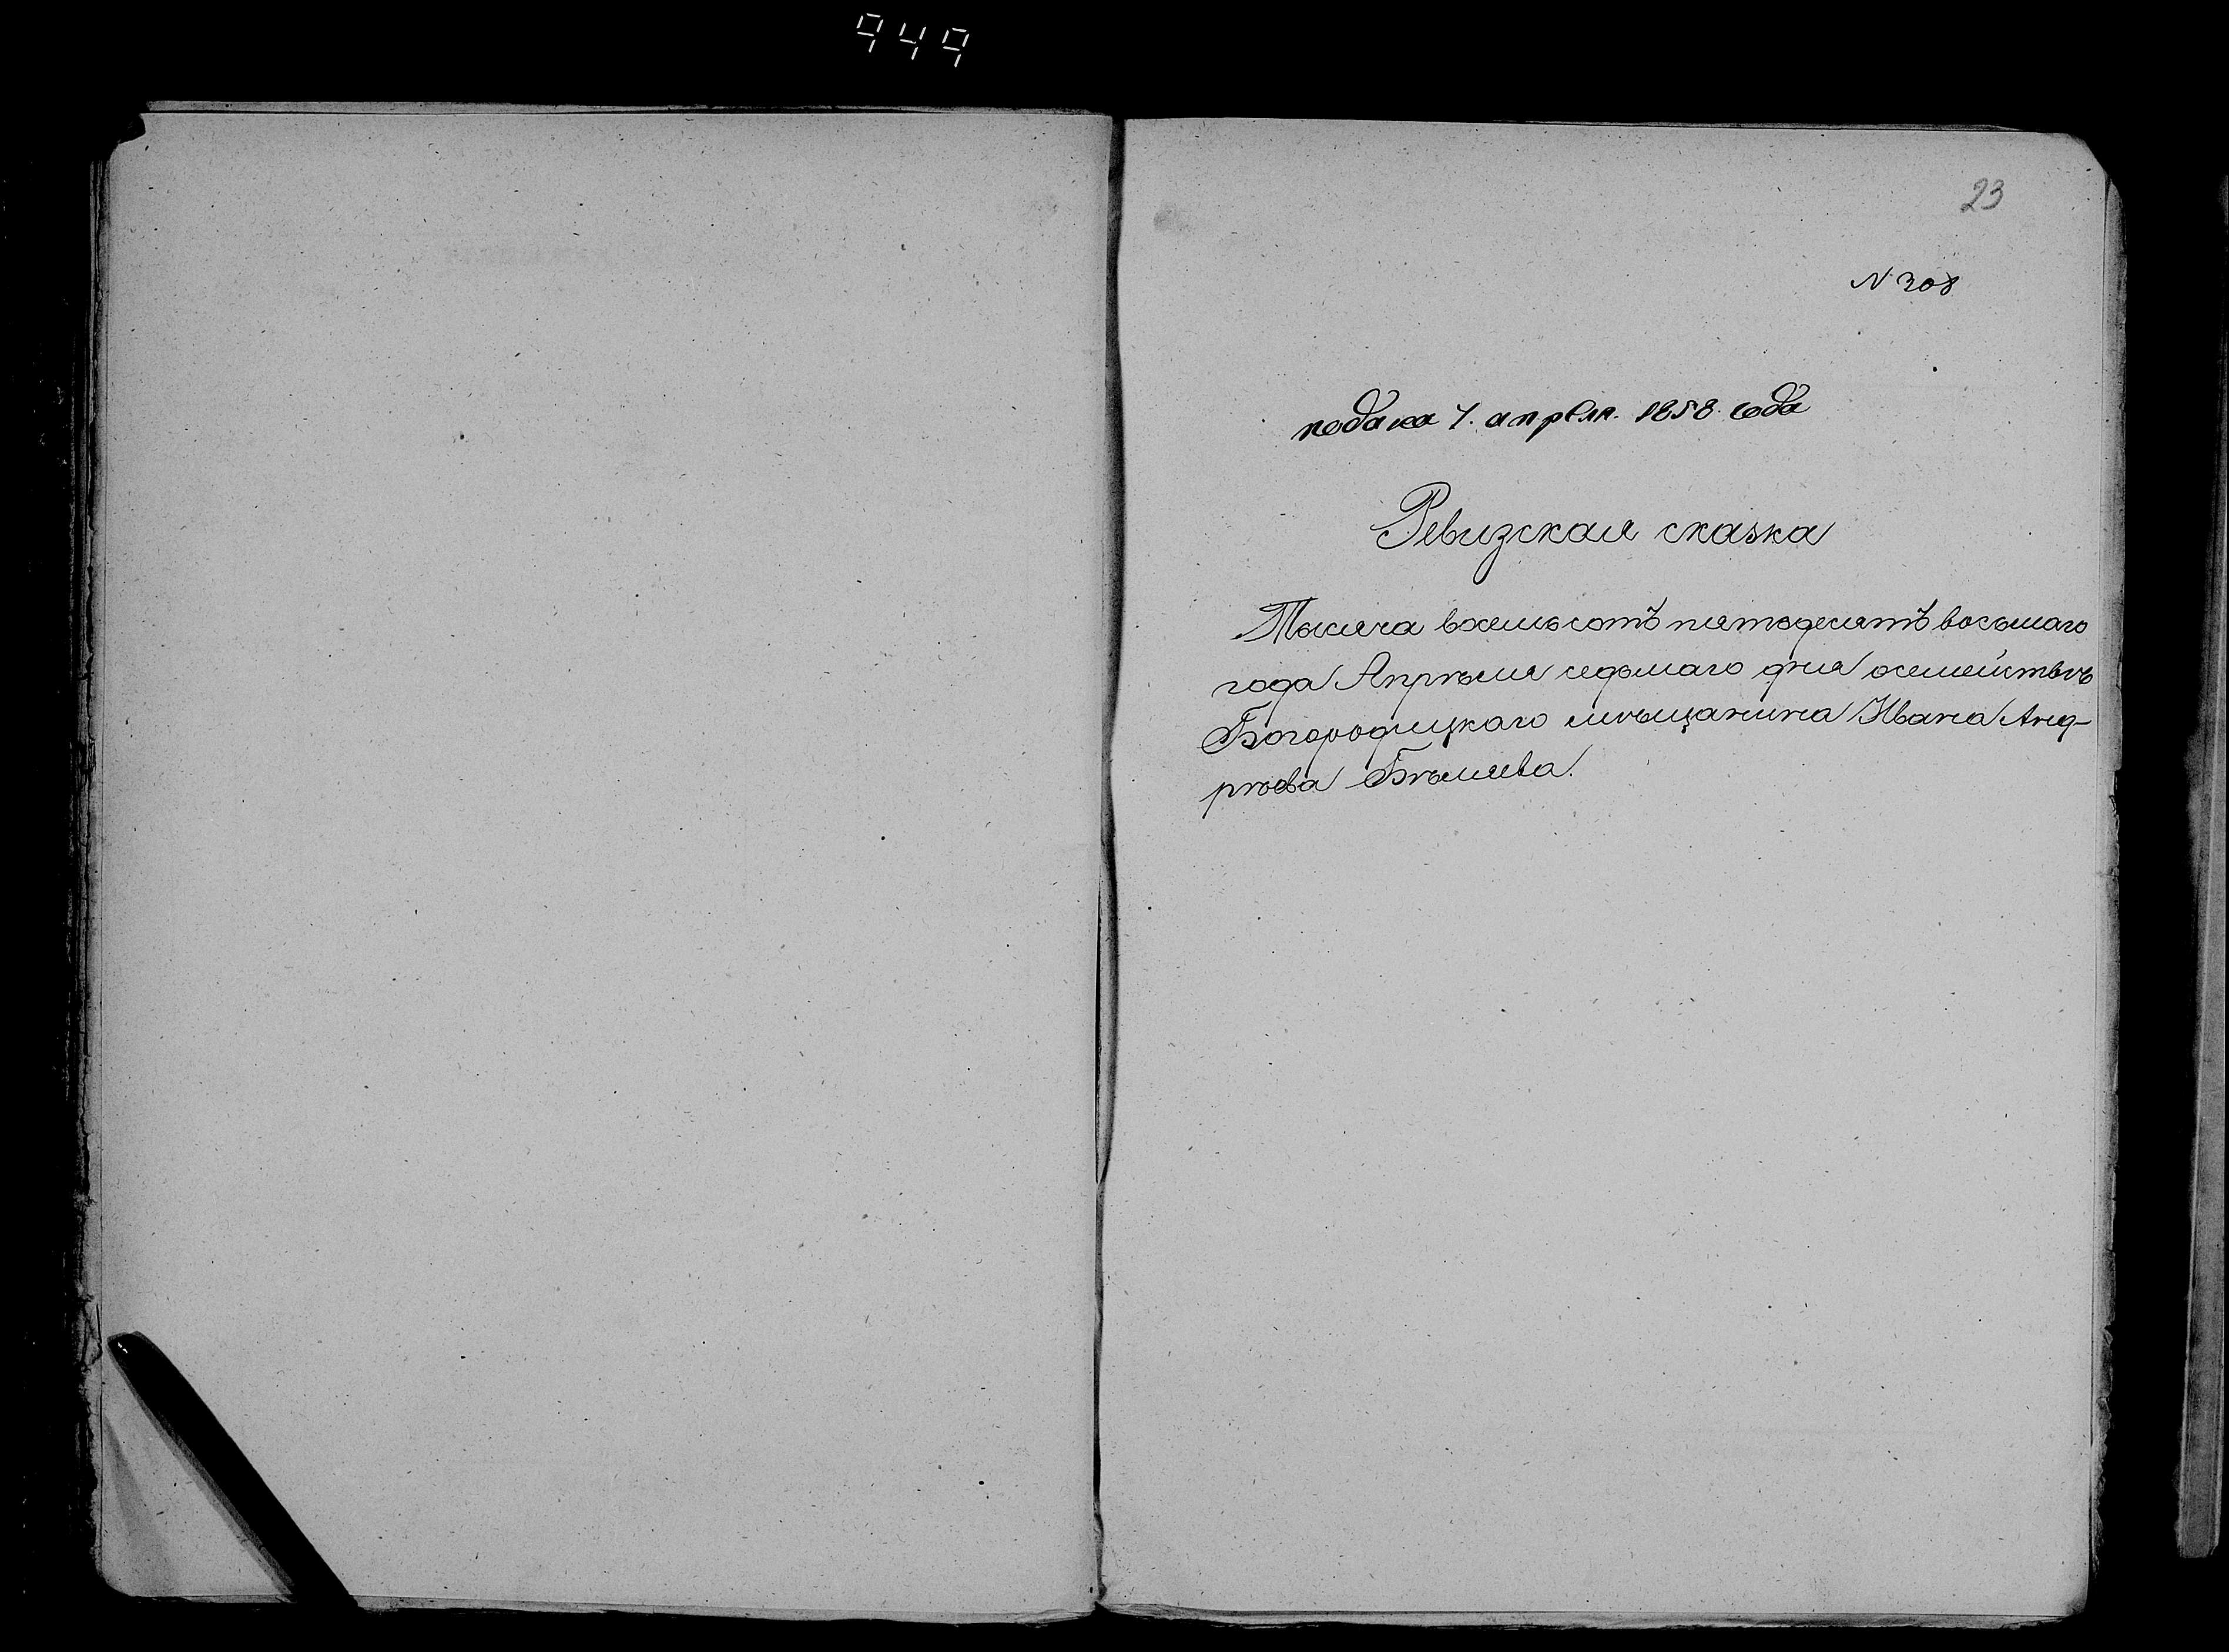 949
23
N 308
подана 7. апреля. 1858. года
Ревизская сказка
Тысяча восемьсотъ пятьдесятъ восьмаго
года Апрѣля седьмаго дня осемействѣ
Богородицкаго мѣщанина Ивана Анд-
рѣева Бѣляева.